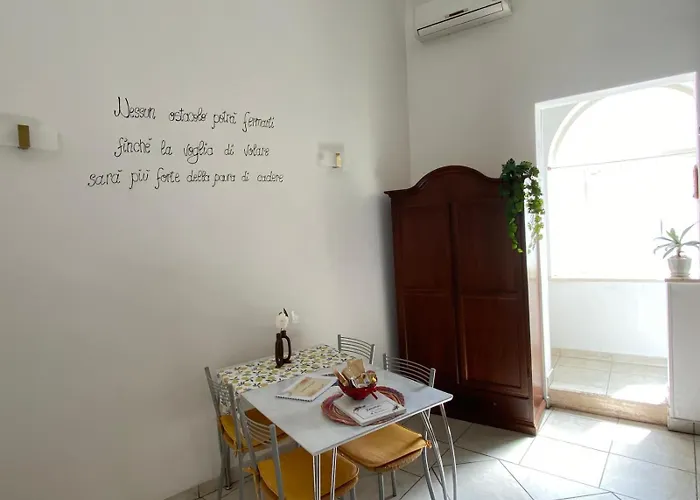 Nessun ostacolo potrà fermarti
finchè la voglia di volare
sarà più forte della paura di cadere